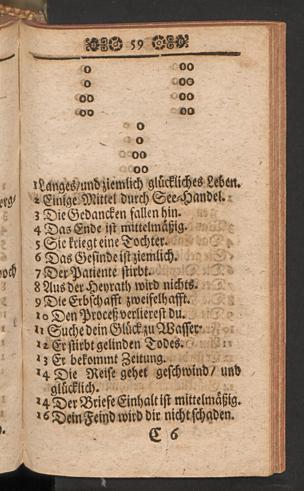 59
o oo
o oo
oo oo
oo oo
o
o
oo
oo
1 Langes/und ziemlich glückliches Leben.
2 Einige Mittel durch See-Handel.
3 Die Gedancken fallen hin.
4 Das Ende ist mittelmäßig.
5 Sie kriegt eine Tochter.
6 Das Gesinde ist ziemlich.
7 Der Patiente stirbt.
8 Aus der Heyrath wird nichts.
9 Die Erbschafft zweifelhafft.
10 Den Proceß verlierest du.
11 Suche dein Glück zu Wasser.
12 Er stirbt gelinden Todes.
13 Er bekommt Zeitung.
14 Die Reise gehet geschwind/ und
glücklich.
14 Der Briefe Einhalt ist mittelmäßig.
16 Dein Feind wird dir nicht schaden.
C 6